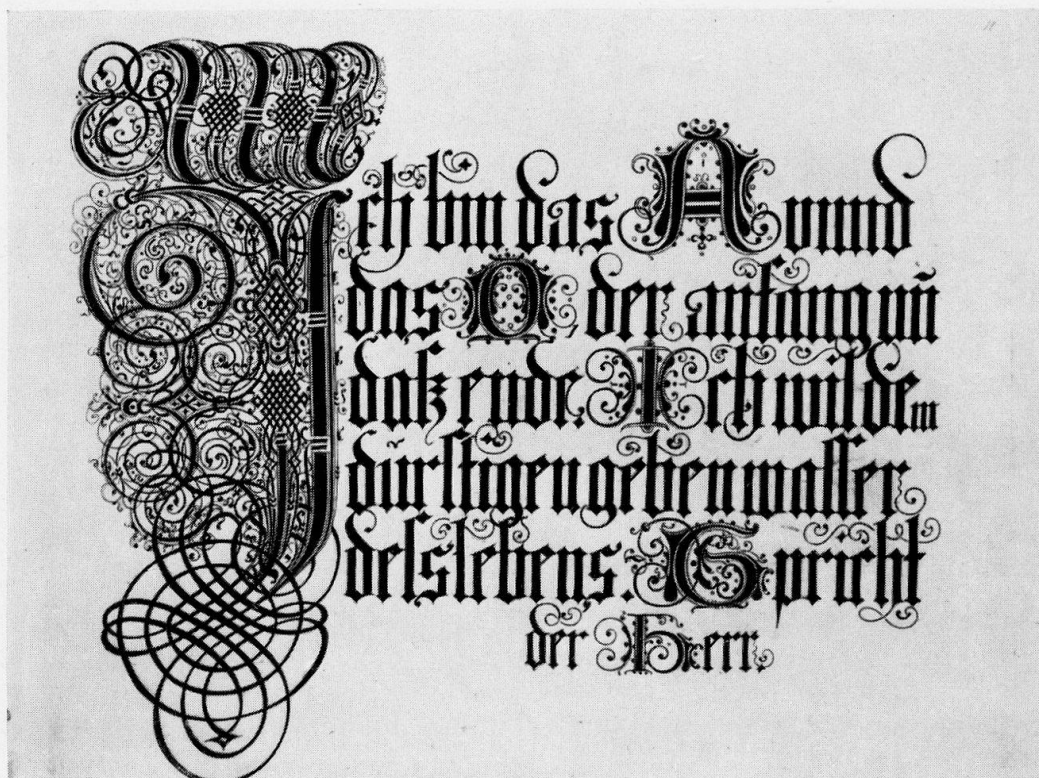 Ich bin das A unnd
das O, der anfang uñ
dasz ende. Ich wil dem
dürstigen geben wasser
dess lebens. Spricht
der Herr.